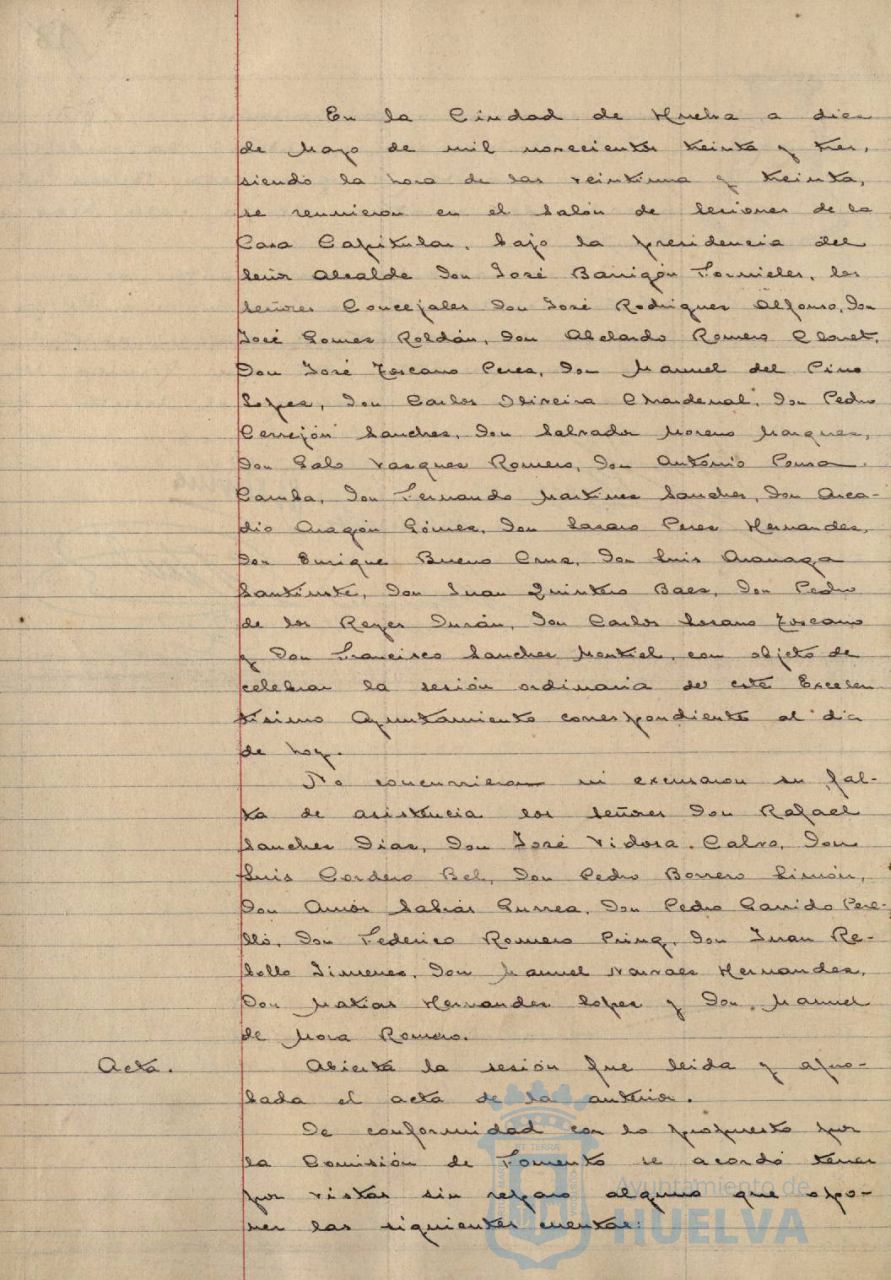 En la Ciudad de Huelva a diez
de Mayo de mil novecientos treinta y tres,
siendo la hora de las veintiuna y treinta,
se reunieron en el Salón de Sesiones de la
Casa Capitular, bajo la presidencia del
Señor Alcalde Don José Barrigón Fornieles, los
Señores Concejales Don José Rodriguez Alfonso, Don
José Gomez Roldán, Don Abelardo Romero Claret,
Don José Toscano Perez, Don Manuel del Pino
Lopez, Don Carlos Oliveira Chardenal, Don Pedro
Cerrejón Sanchez, Don Salvador Moreno Marquez,
Don Galo Vazquez Romero, Don Antonio Pousa
Camba, Don Fernando Martinez Sanchez, Don Arca-
dio Aragón Gómez, Don Lazaro Perez Hernandez,
Don Enrique Bueno Cruz, Don Luis Aranaga
Santiusté, Don Juan Quintero Baez, Don Pedro
de los Reyes Durán, Don Carlos Lozano Toscano
y Don Francisco Sanchez Montiel, con objeto de
celebrar la sesión ordinaria de este Excelen
tísimo Ayuntamiento correspondiente al dia
de hoy.
No concurrieron ni excusaron su fal-
ta de asistencia los señores Don Rafael
Sanchez Diaz, Don José Vidosa Calvo, Don
Luis Cordero Bel, Don Pedro Borrero Limón,
Don Amós Sabrás Gurrea, Don Pedro Garrido Pere-
lló, Don Federico Romero Pring, Don Juan Re-
bollo Jimenez, Don Manuel Narvaez Hernandez,
Don Matias Hernandez Lopez y Don Manuel
de Mora Romero.
Acta.
Abierta la sesión fue leida y apro-
bada el acta de la anterior.
De conformidad con lo propuesto por
la Comisión de Fomento se acordó tener
por vistas sin reparo alguno que opo-
ner las siguientes cuentas:
Ayuntamiento de
HUELVA